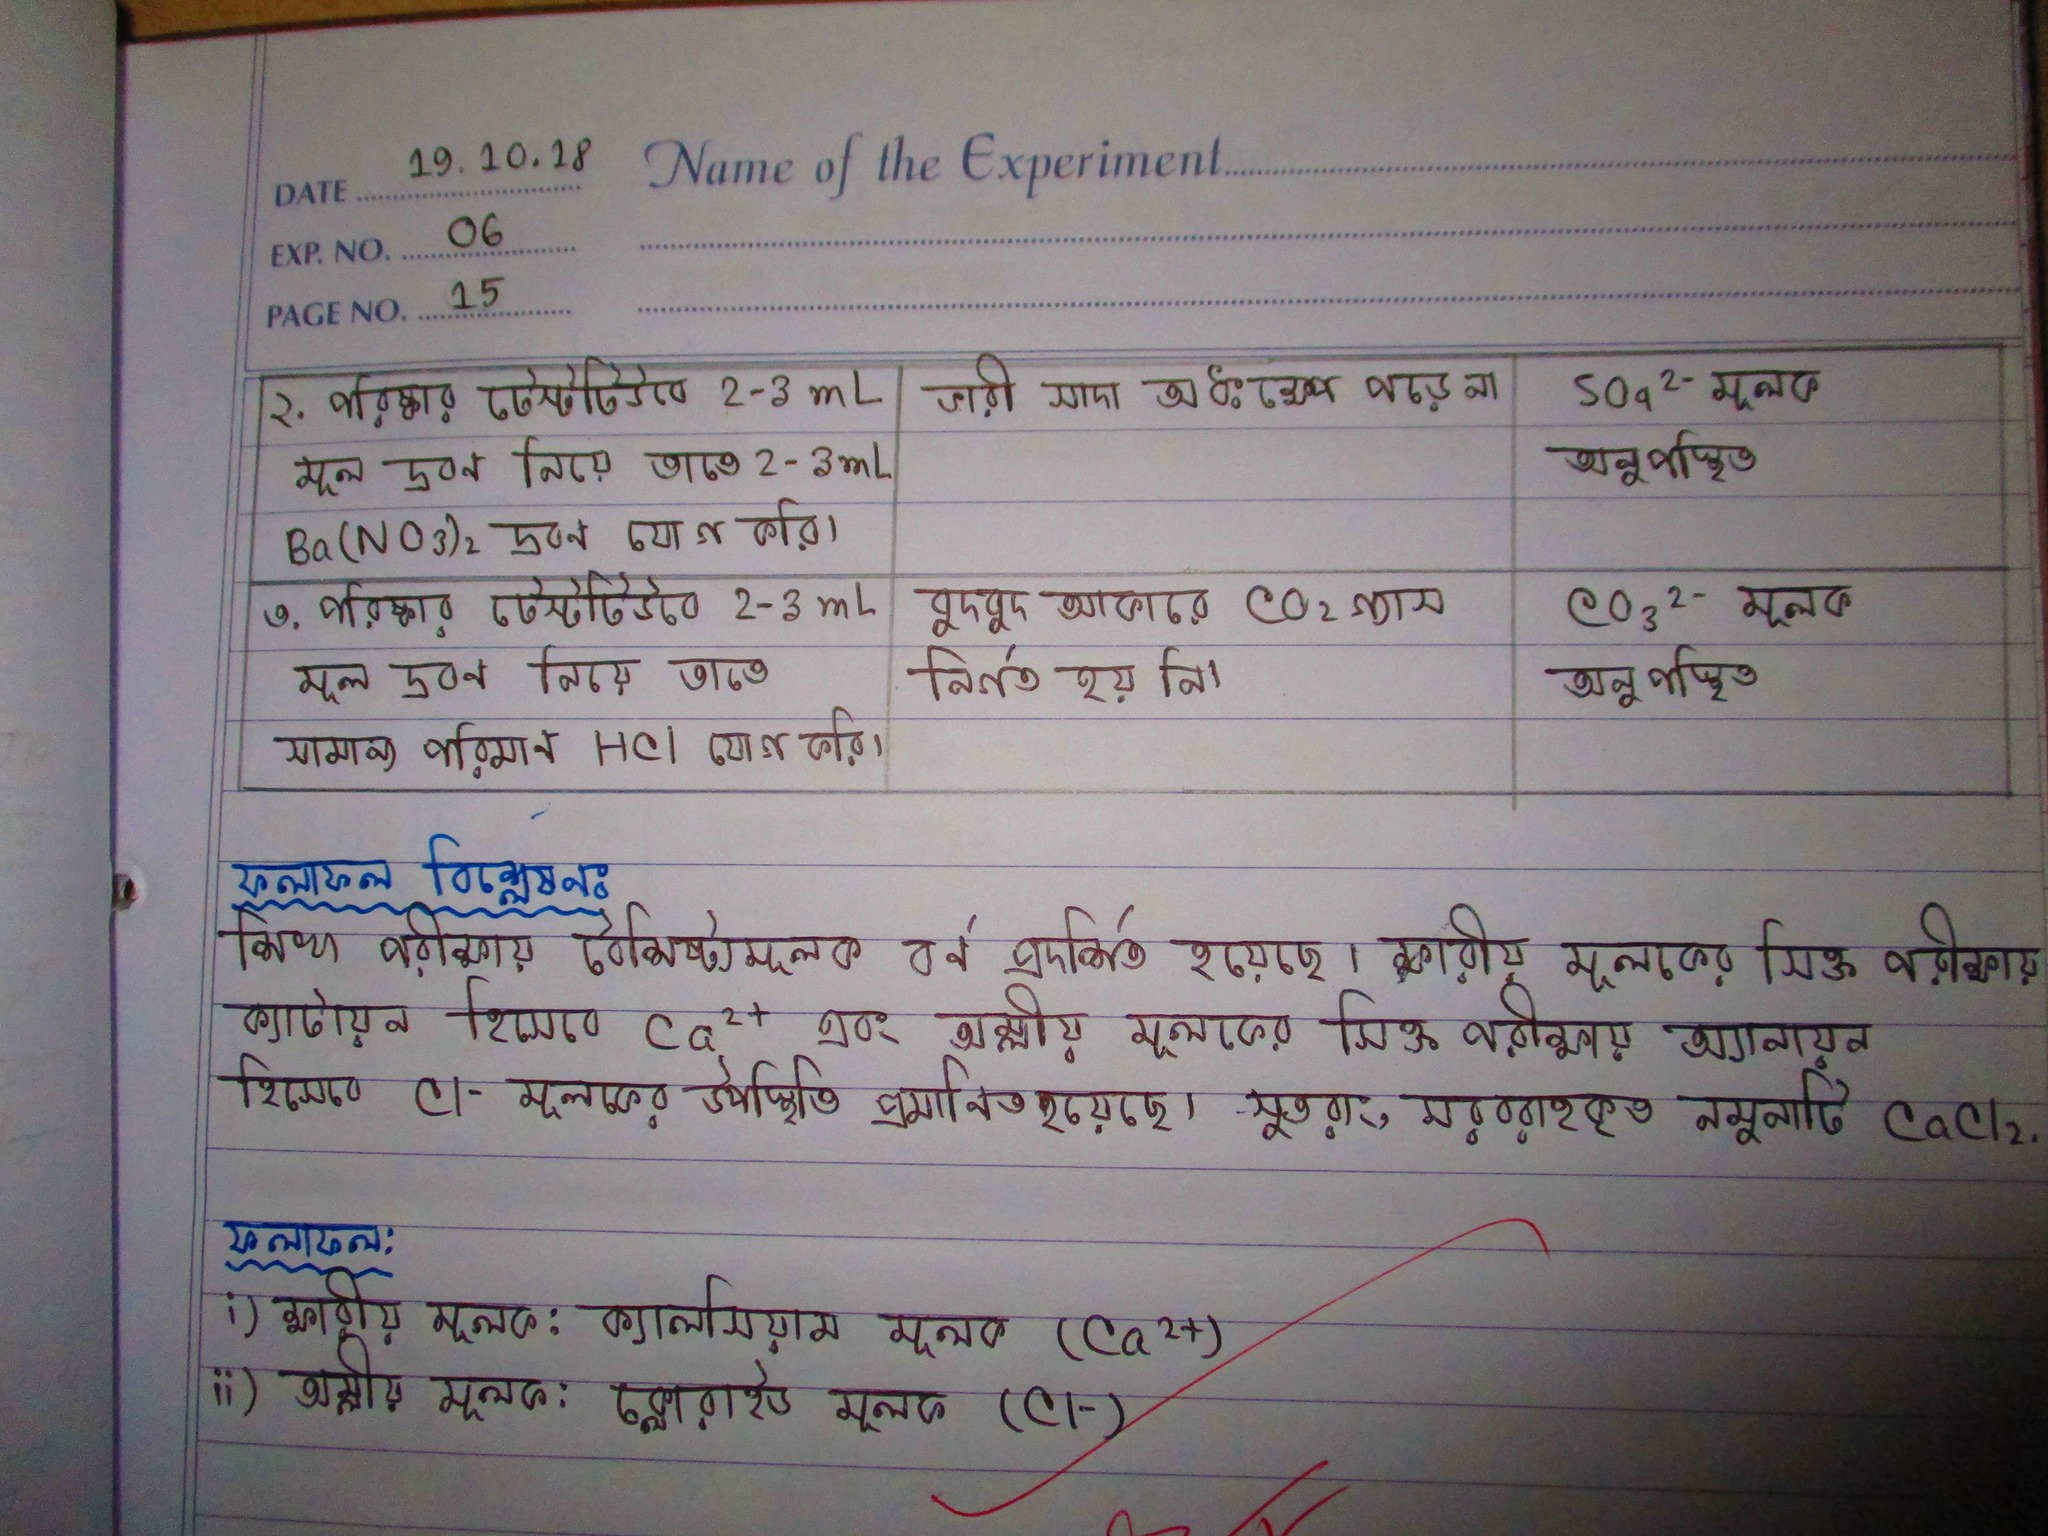 DATE 19.10.18 Name of the Experiment
EXP. NO. 06
PAGE NO. 15
২. পরিষ্কার টেস্টটিউবে 2-3 mL
মূল দ্রবন নিয়ে তাতে 2-3mL
Ba(NO3)2 দ্রবন যোগ করি।
ভারী সাদা অধঃক্ষেপ পড়ে না
SO4 2- মূলক
অনুপস্থিত
৩. পরিষ্কার টেস্টটিউবে 2-3 mL
মূল দ্রবন নিয়ে তাতে
সামান্য পরিমান HCl যোগ করি।
বুদবুদ আকারে CO2 গ্যাস
নির্গত হয় নি।
CO3 2- মূলক
অনুপস্থিত
ফলাফল বিশ্লেষনঃ
শিখা পরীক্ষায় বৈশিষ্ট্যমূলক বর্ন প্রদর্শিত হয়েছে। ক্ষারীয় মূলকের সিক্ত পরীক্ষায়
ক্যাটায়ন হিসেবে Ca2+ এবং অম্লীয় মূলকের সিক্ত পরীক্ষায় অ্যানায়ন
হিসেবে Cl- মূলকের উপস্থিতি প্রমানিত হয়েছে। সুতরাং, সরবরাহকৃত নমুনাটি CaCl2.
ফলাফল:
i) ক্ষারীয় মূলক: ক্যালসিয়াম মূলক (Ca2+)
ii) অম্লীয় মূলক: ক্লোরাইড মূলক (Cl-)